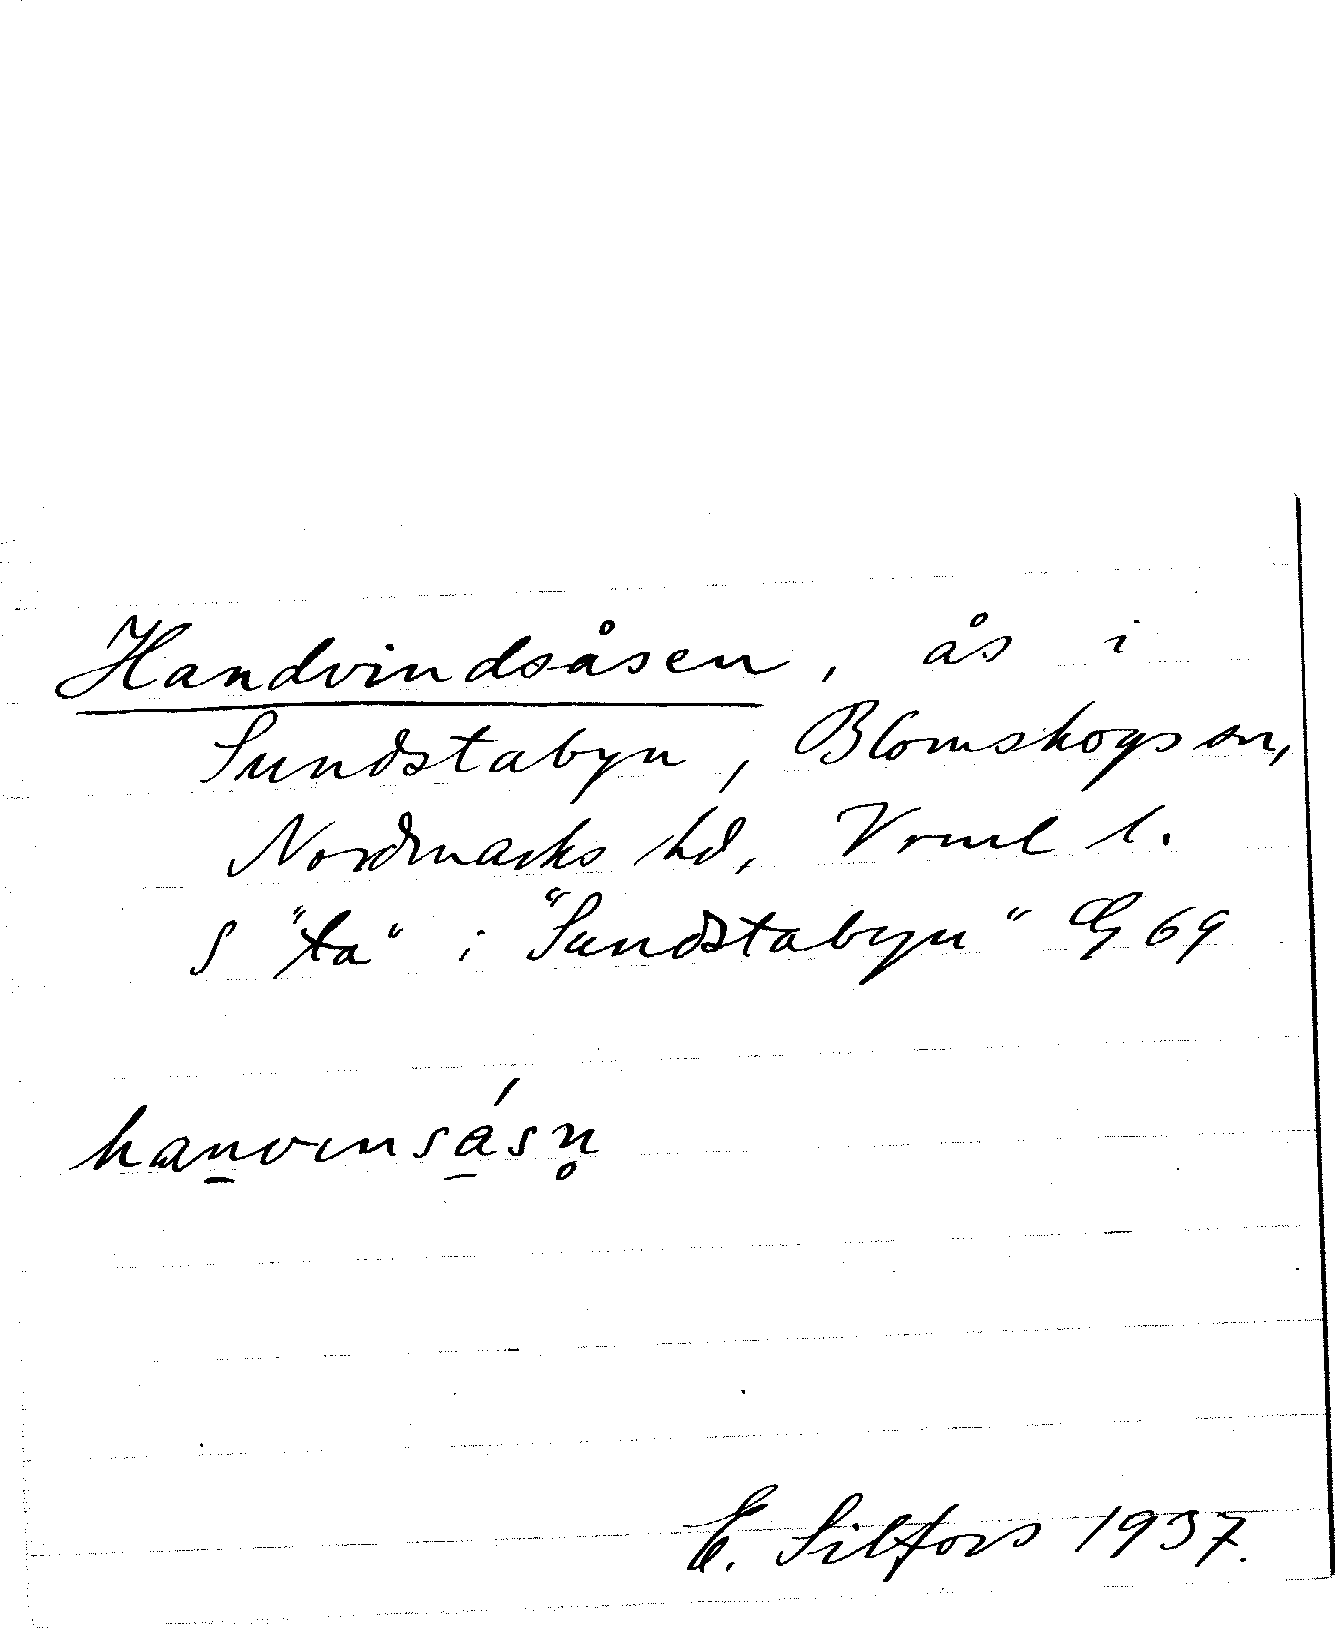 Handvindsåsen, ås i
Sundstabyn, Blomskogs sn,
Nordmarks hd, Vrml l.
S "ta" i "Sundstabyn" G 69
hanvinsásn̥
E. Silfors 1937.